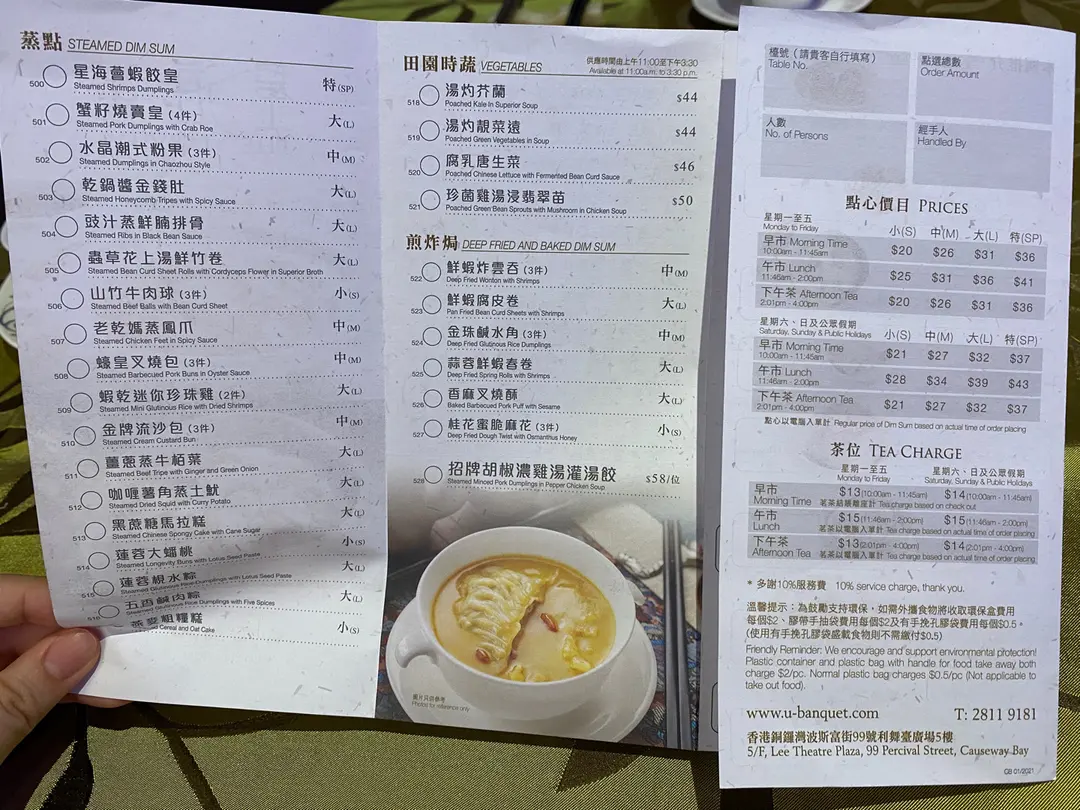 蒸點 STEAMED DIM SUM
500 星海薈蝦餃皇 特(SP)
Steamed Shrimps Dumplings
501 蟹籽燒賣皇 (4件) 大(L)
Steamed Pork Dumplings with Crab Roe
502 水晶潮式粉果 (3件) 中(M)
Steamed Dumplings in Chaozhou Style
503 乾鍋醬金錢肚 大(L)
Steamed Honeycomb Tripes with Spicy Sauce
504 豉汁蒸鮮腩排骨 大(L)
Steamed Ribs in Black Bean Sauce
505 蟲草花上湯鮮竹卷 大(L)
Steamed Bean Curd Sheet Rolls with Cordyceps Flower in Superior Broth
506 山竹牛肉球 (3件) 小(S)
Steamed Beef Balls with Bean Curd Sheet
507 老乾媽蒸鳳爪 中(M)
Steamed Chicken Feet in Spicy Sauce
508 蠔皇叉燒包 (3件) 中(M)
Steamed Barbecued Pork Buns in Oyster Sauce
509 蝦乾迷你珍珠雞 (2件) 大(L)
Steamed Mini Glutinous Rice with Dried Shrimps
510 金牌流沙包 (3件) 中(M)
Steamed Cream Custard Bun
511 薑蔥蒸牛栢葉 大(L)
Steamed Beef Tripe with Ginger and Green Onion
512 咖喱薯角蒸土魷 大(L)
Steamed Dried Squid with Curry Potato
513 黑蔗糖馬拉糕 大(L)
Steamed Chinese Spongy Cake with Cane Sugar
514 蓮蓉大蟠桃 小(S)
Steamed Longevity Buns with Lotus Seed Paste
515 蓮蓉梘水粽 大(L)
Steamed Glutinous Rice Dumplings with Lotus Seed Paste
516 五香鹹肉粽 大(L)
Steamed Glutinous Rice Dumplings with Five Spices
燕麥粗糧糕 小(S)
Cereal and Oat Cake
田園時蔬 VEGETABLES
供應時間由上午11:00至下午3:30
Available at 11:00a.m. to 3:30 p.m.
518 湯灼芥蘭 $44
Poached Kale in Superior Soup
519 湯灼靚菜遠 $44
Poached Green Vegetables in Soup
520 腐乳唐生菜 $46
Poached Chinese Lettuce with Fermented Bean Curd Sauce
521 珍菌雞湯浸翡翠苗 $50
Poached Green Bean Sprouts with Mushroom in Chicken Soup
煎炸焗 DEEP FRIED AND BAKED DIM SUM
522 鮮蝦炸雲吞 (3件) 中(M)
Deep Fried Wonton with Shrimps
523 鮮蝦腐皮卷 大(L)
Pan Fried Bean Curd Sheets with Shrimps
524 金珠鹹水角 (3件) 中(M)
Deep Fried Glutinous Rice Dumplings
525 蒜蓉鮮蝦春卷 大(L)
Deep Fried Spring Rolls with Shrimps
526 香麻叉燒酥 大(L)
Baked Barbecued Pork Puff with Sesame
527 桂花蜜脆麻花 (3件) 小(S)
Deep Fried Dough Twist with Osmanthus Honey
528 招牌胡椒濃雞湯灌湯餃 $58/位
Steamed Minced Pork Dumplings in Pepper Chicken Soup
圖片只供參考
Photos for reference only
檯號 (請貴客自行填寫)
Table No.
點選總數
Order Amount
人數
No. of Persons
經手人
Handled By
點心價目 PRICES
星期一至五 小(S) 中(M) 大(L) 特(SP)
Monday to Friday
早市 Morning Time $20 $26 $31 $36
10:00am - 11:45am
午市 Lunch $25 $31 $36 $41
11:46am - 2:00pm
下午茶 Afternoon Tea $20 $26 $31 $36
2:01pm - 4:00pm
星期六、日及公眾假期 小(S) 中(M) 大(L) 特(SP)
Saturday, Sunday & Public Holidays
早市 Morning Time $21 $27 $32 $37
10:00am - 11:45am
午市 Lunch $28 $34 $39 $43
11:46am - 2:00pm
下午茶 Afternoon Tea $21 $27 $32 $37
2:01pm - 4:00pm
點心以電腦入單計 Regular price of Dim Sum based on actual time of order placing
茶位 TEA CHARGE
星期一至五 星期六、日及公眾假期
Monday to Friday Saturday, Sunday & Public Holidays
早市 $13(10:00am - 11:45am) $14(10:00am - 11:45am)
Morning Time 茗茶結帳離座計 Tea charge based on check out
午市 $15(11:46am - 2:00pm) $15(11:46am - 2:00pm)
Lunch 茗茶以電腦入單計 Tea charge based on actual time of order placing
下午茶 $13(2:01pm - 4:00pm) $14(2:01pm - 4:00pm)
Afternoon Tea 茗茶以電腦入單計 Tea charge based on actual time of order placing
* 多謝10%服務費 10% service charge, thank you.
溫馨提示：為鼓勵支持環保，如需外攜食物將收取環保盒費用
每個$2、膠帶手抽袋費用每個$2及有手挽孔膠袋費用每個$0.5。
(使用有手挽孔膠袋盛載食物則不需繳付$0.5)
Friendly Reminder: We encourage and support environmental protection!
Plastic container and plastic bag with handle for food take away both
charge $2/pc. Normal plastic bag charges $0.5/pc (Not applicable to
take out food).
www.u-banquet.com T: 2811 9181
香港銅鑼灣波斯富街99號利舞臺廣場5樓
5/F, Lee Theatre Plaza, 99 Percival Street, Causeway Bay
GB 01/2021